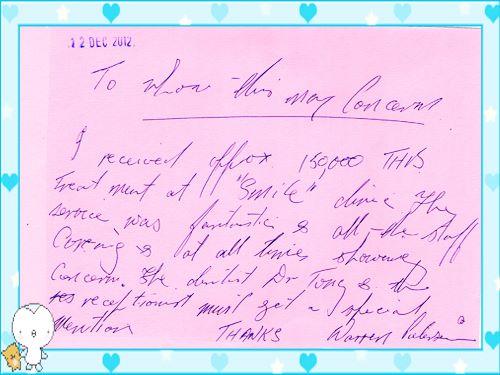 12 DEC 2012.
To whom this may Concern
I received approx 150,000 THB
treatment at "Smile" clinic The
service was fantastic & all the staff
Caring & at all times showing
Concern. The dentist Dr Tong & the
receptionist must get a special
mention THANKS Warren